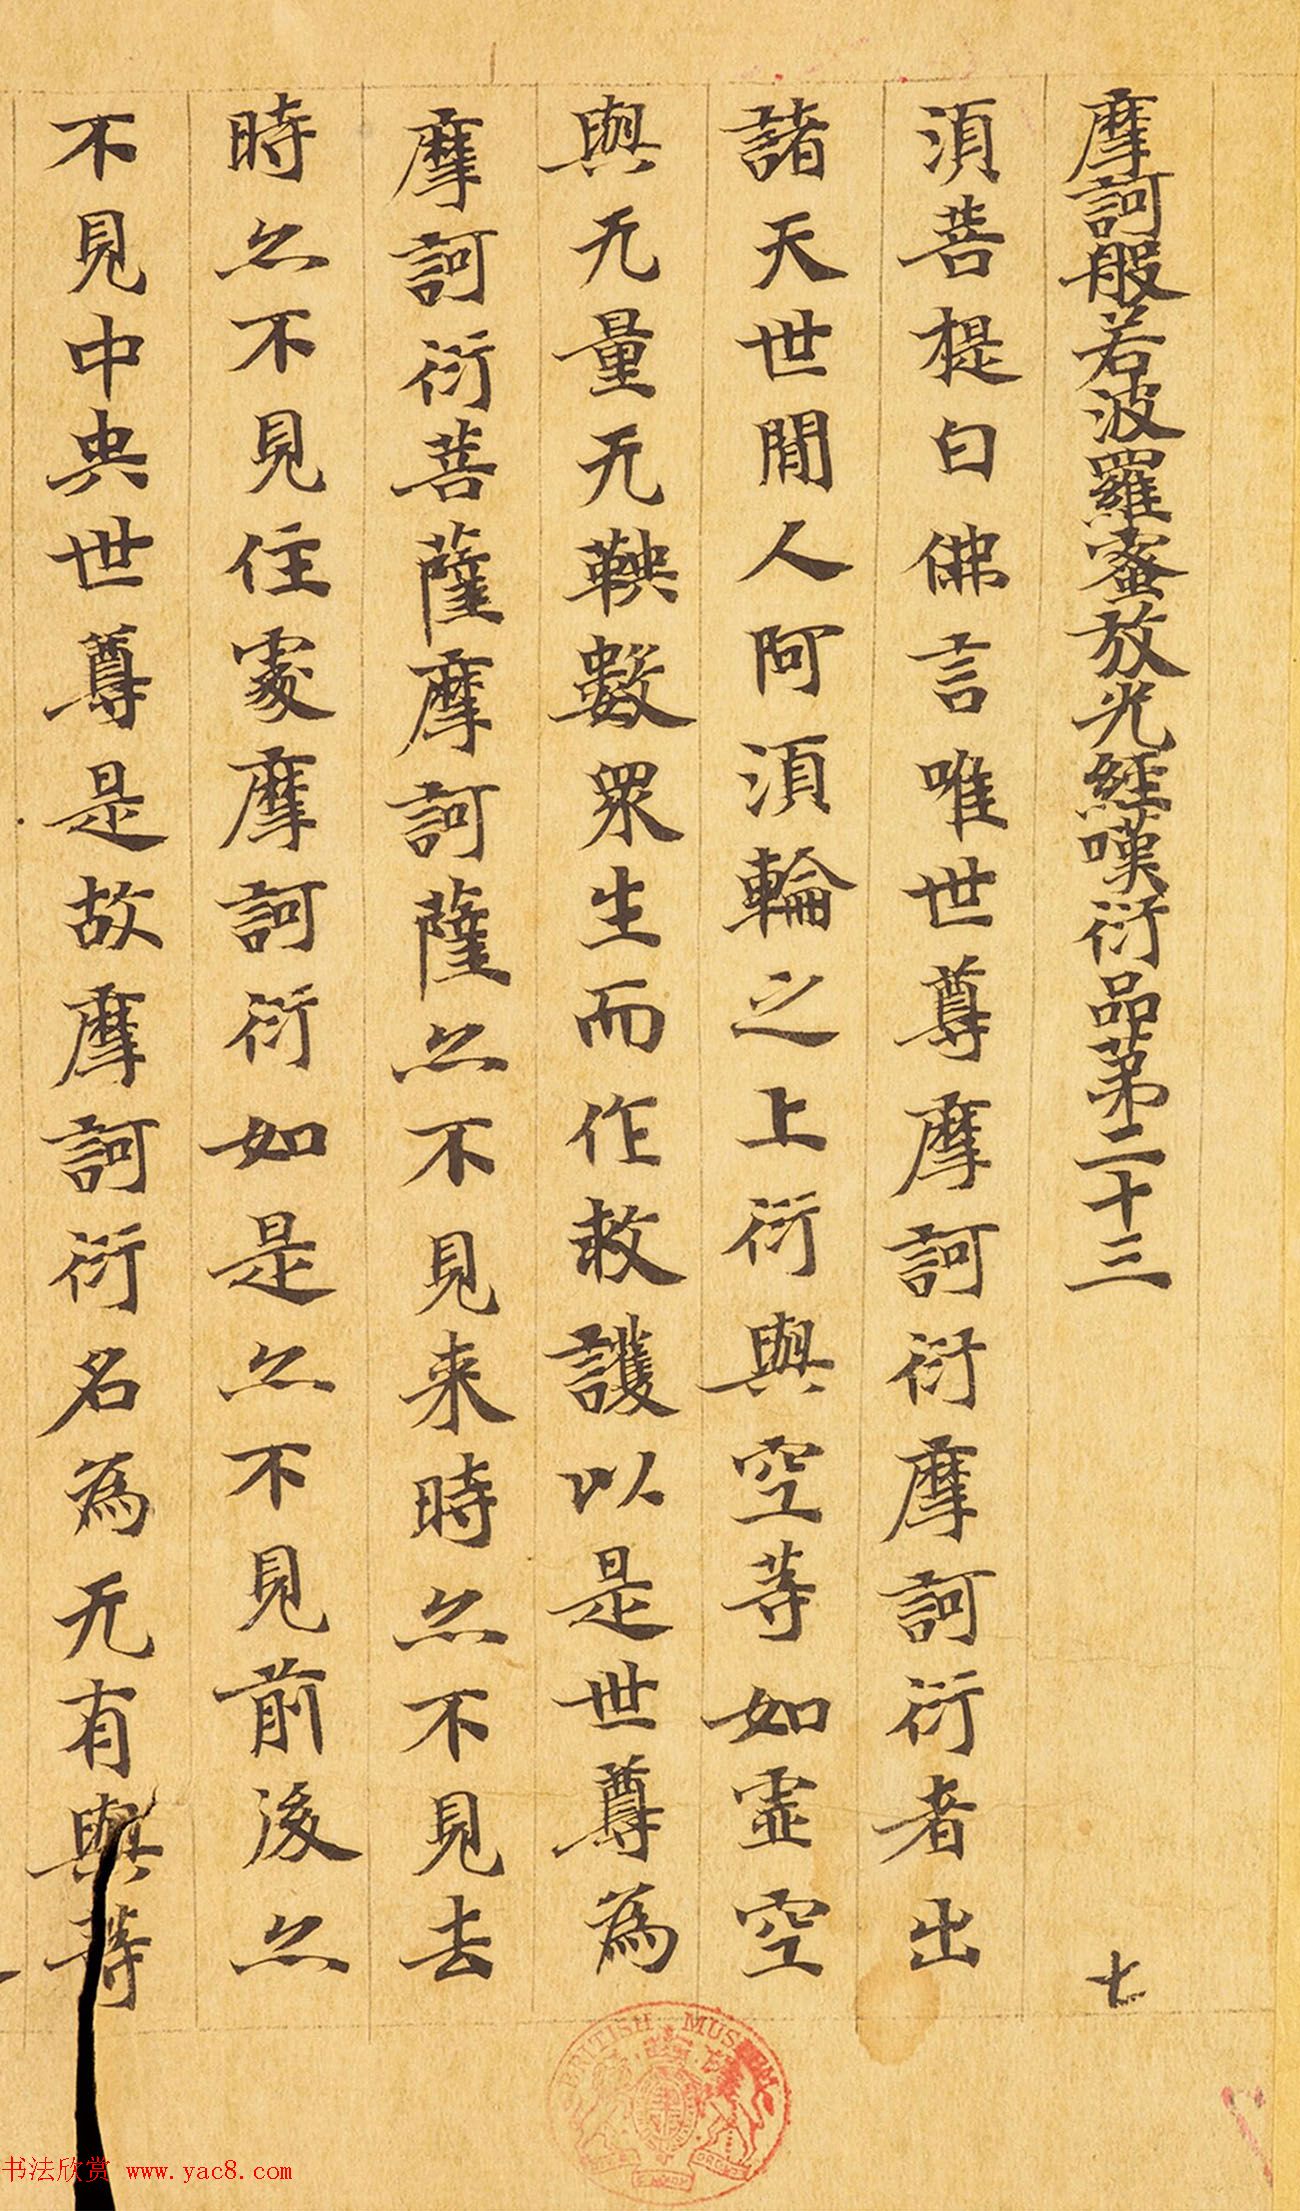 摩訶般若波羅蜜放光經嘆衍品第二十三
七
湏菩提白佛言唯世尊摩訶衍摩訶衍者出
諸天世間人阿湏輪之上衍與空等如虛空
與无量无鞅數眾生而作救護以是世尊為
摩訶衍菩薩摩訶薩亦不見来時亦不見去
時亦不見住處摩訶衍如是亦不見前後亦
不見中央世尊是故摩訶衍名為无有與等
BRITISH MUSEUM
书法欣赏 www.yac8.com